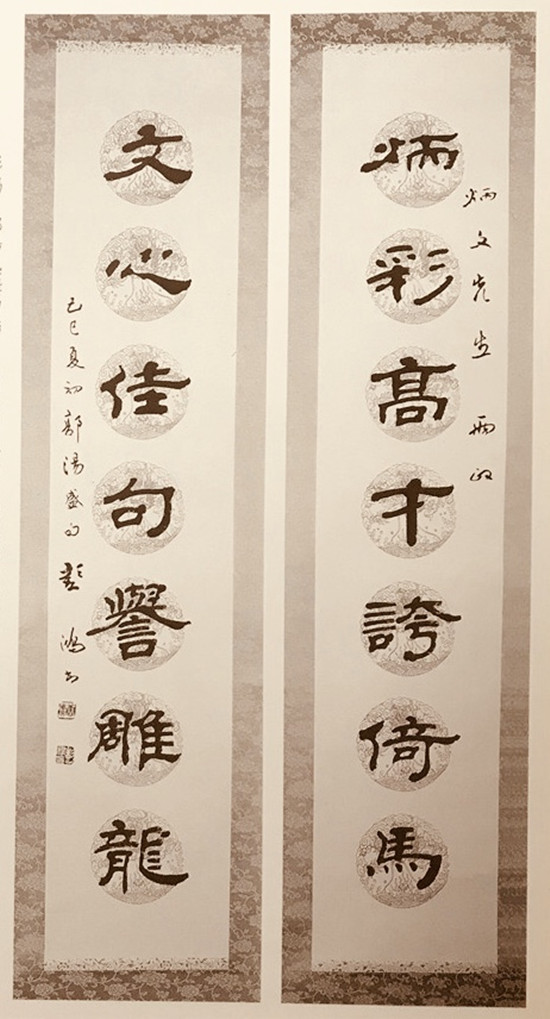 炳文先生雨政
炳彩高才誇倚馬
文心佳句譽雕龍
己巳夏初郭湯盛句彭鴻書